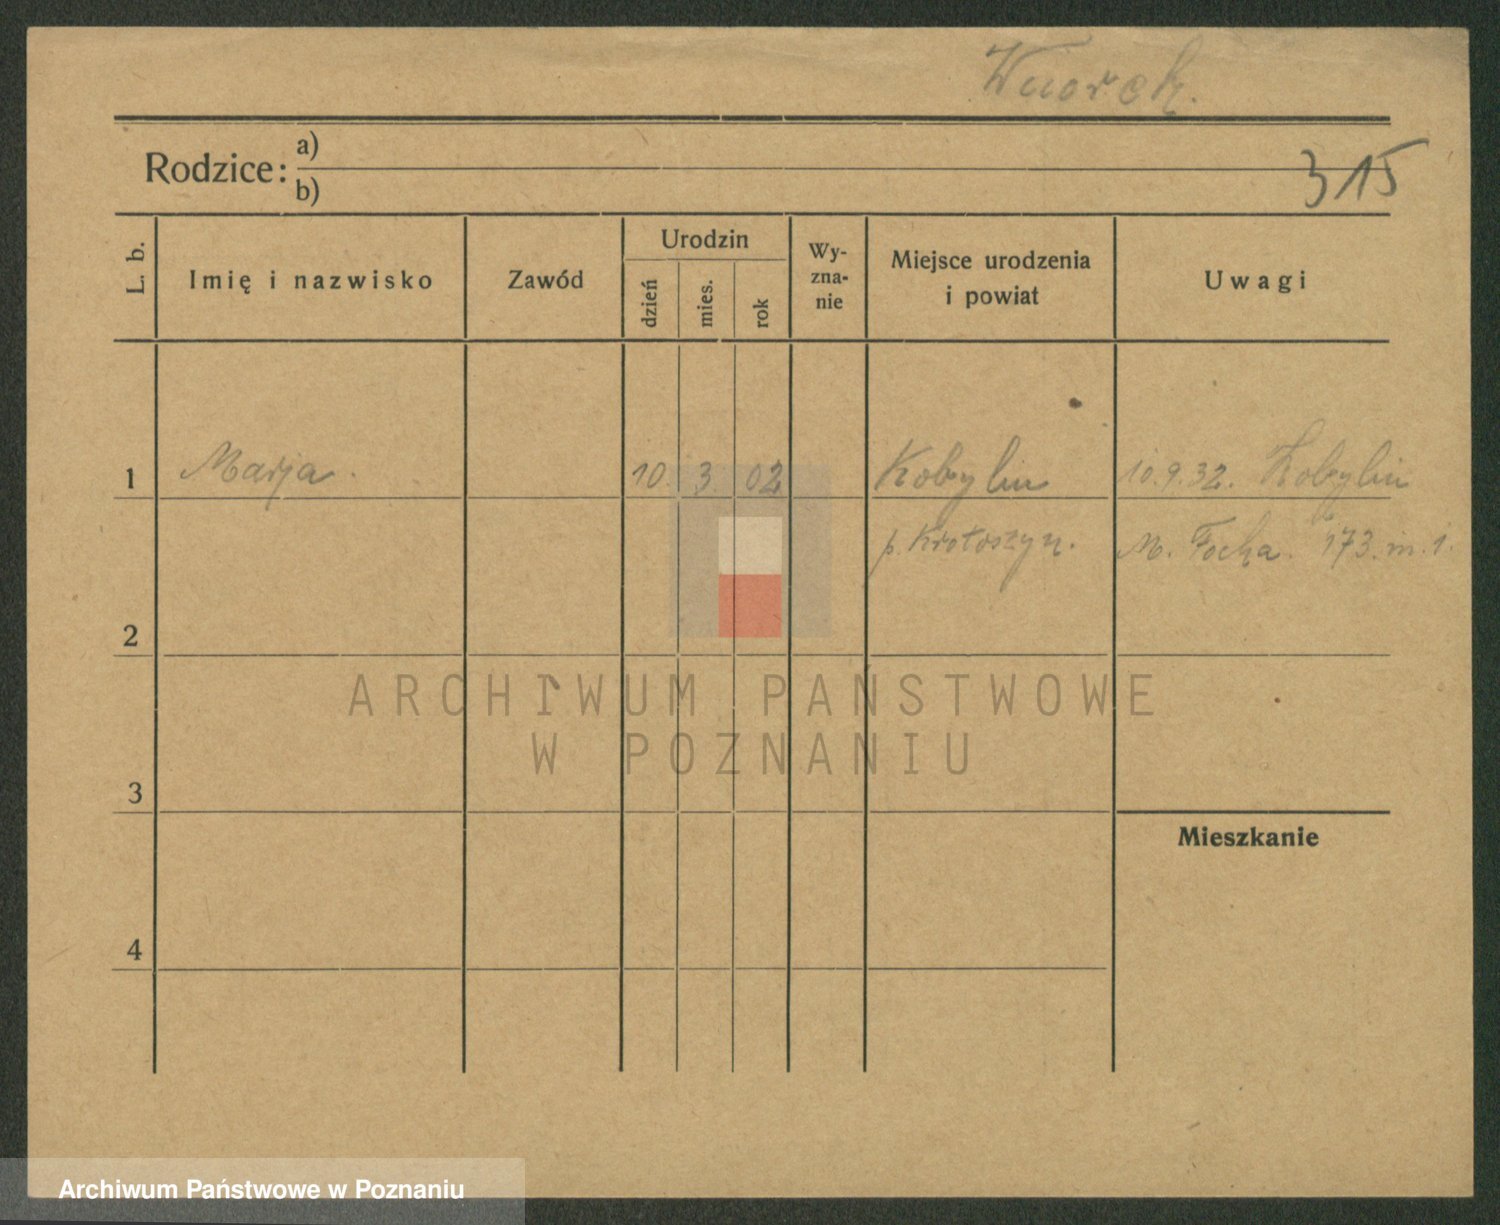 Wiorek.
315
Rodzice:
a)
b)
L. b.
Imię i nazwisko
Zawód
Urodzin
dzień
mies.
rok
Wy-
zna-
nie
Miejsce urodzenia
i powiat
Uwagi
1 Marja. 10. 3. 02 Kobylin 10.9.32. Kobylin
p. Krotoszyn. M. Focha. 173. m. 1.
2
3
Mieszkanie
4
ARCHIWUM PAŃSTWOWE
W POZNANIU
Archiwum Państwowe w Poznaniu